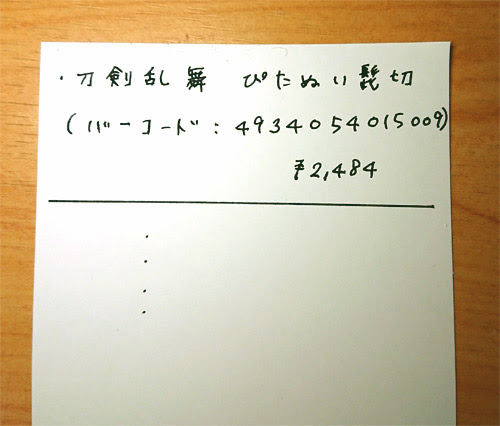 ・刀剣乱舞 ぴたぬい髭切
(バーコード: 4934054015009)
₹2,484